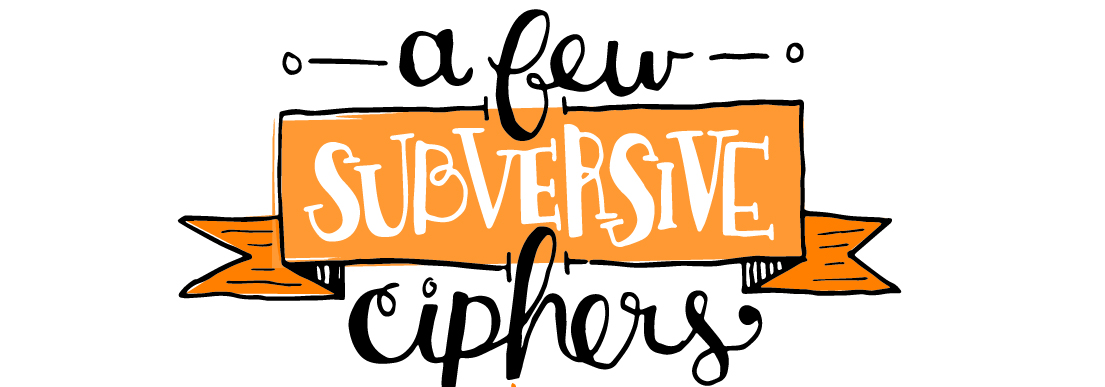 a few
SUBVERSIVE
ciphers